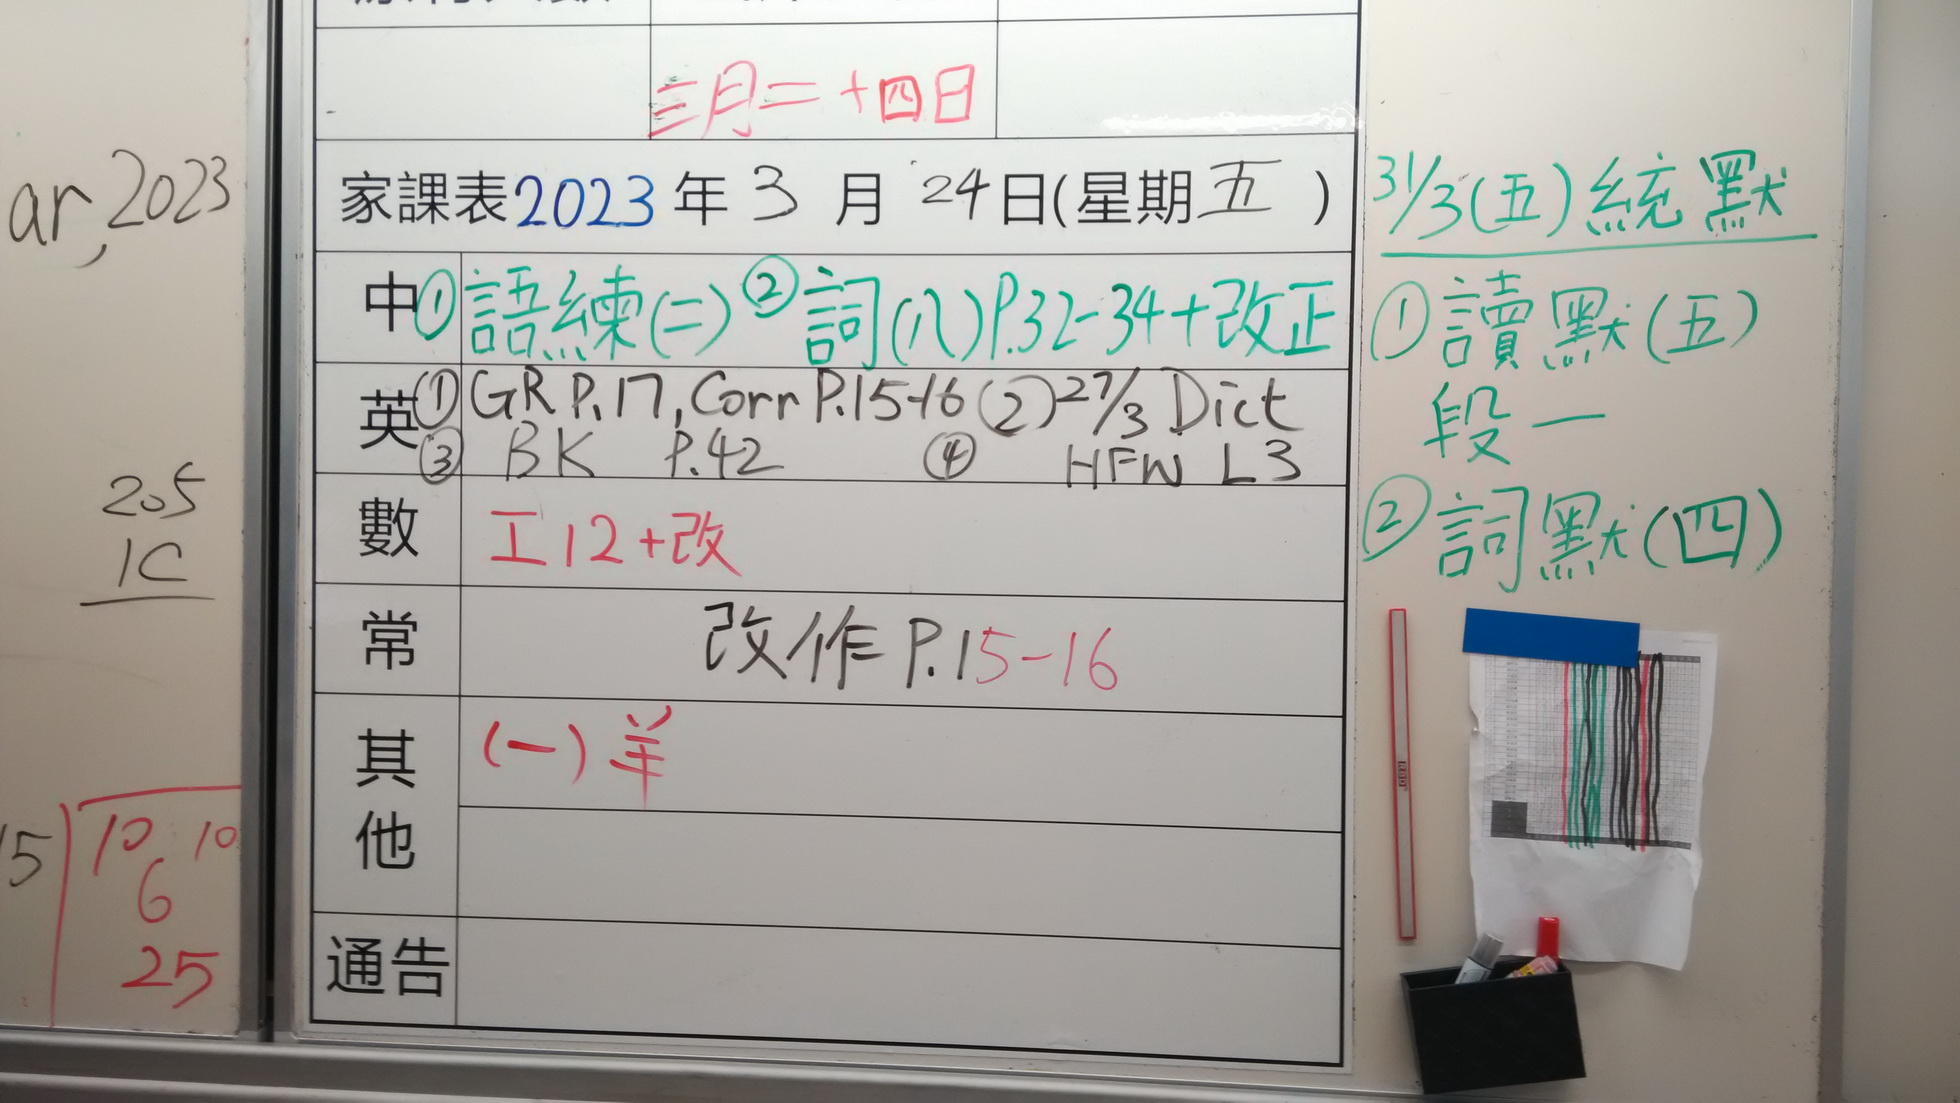 三月二十四日
家課表2023年3月24日(星期五)
中①語練(二)②詞(八)P.32-34+改正
英①GR P.17, Corr P.15-16 ②27/3 Dict
③ BK P.42 ④ HFW L3
數 工12+改
常 改作 P.15-16
其他 (一)羊
通告
31/3(五)統默
①讀默(五)
段一
②詞默(四)
ar, 2023
205
1C
15 10 10
6
25